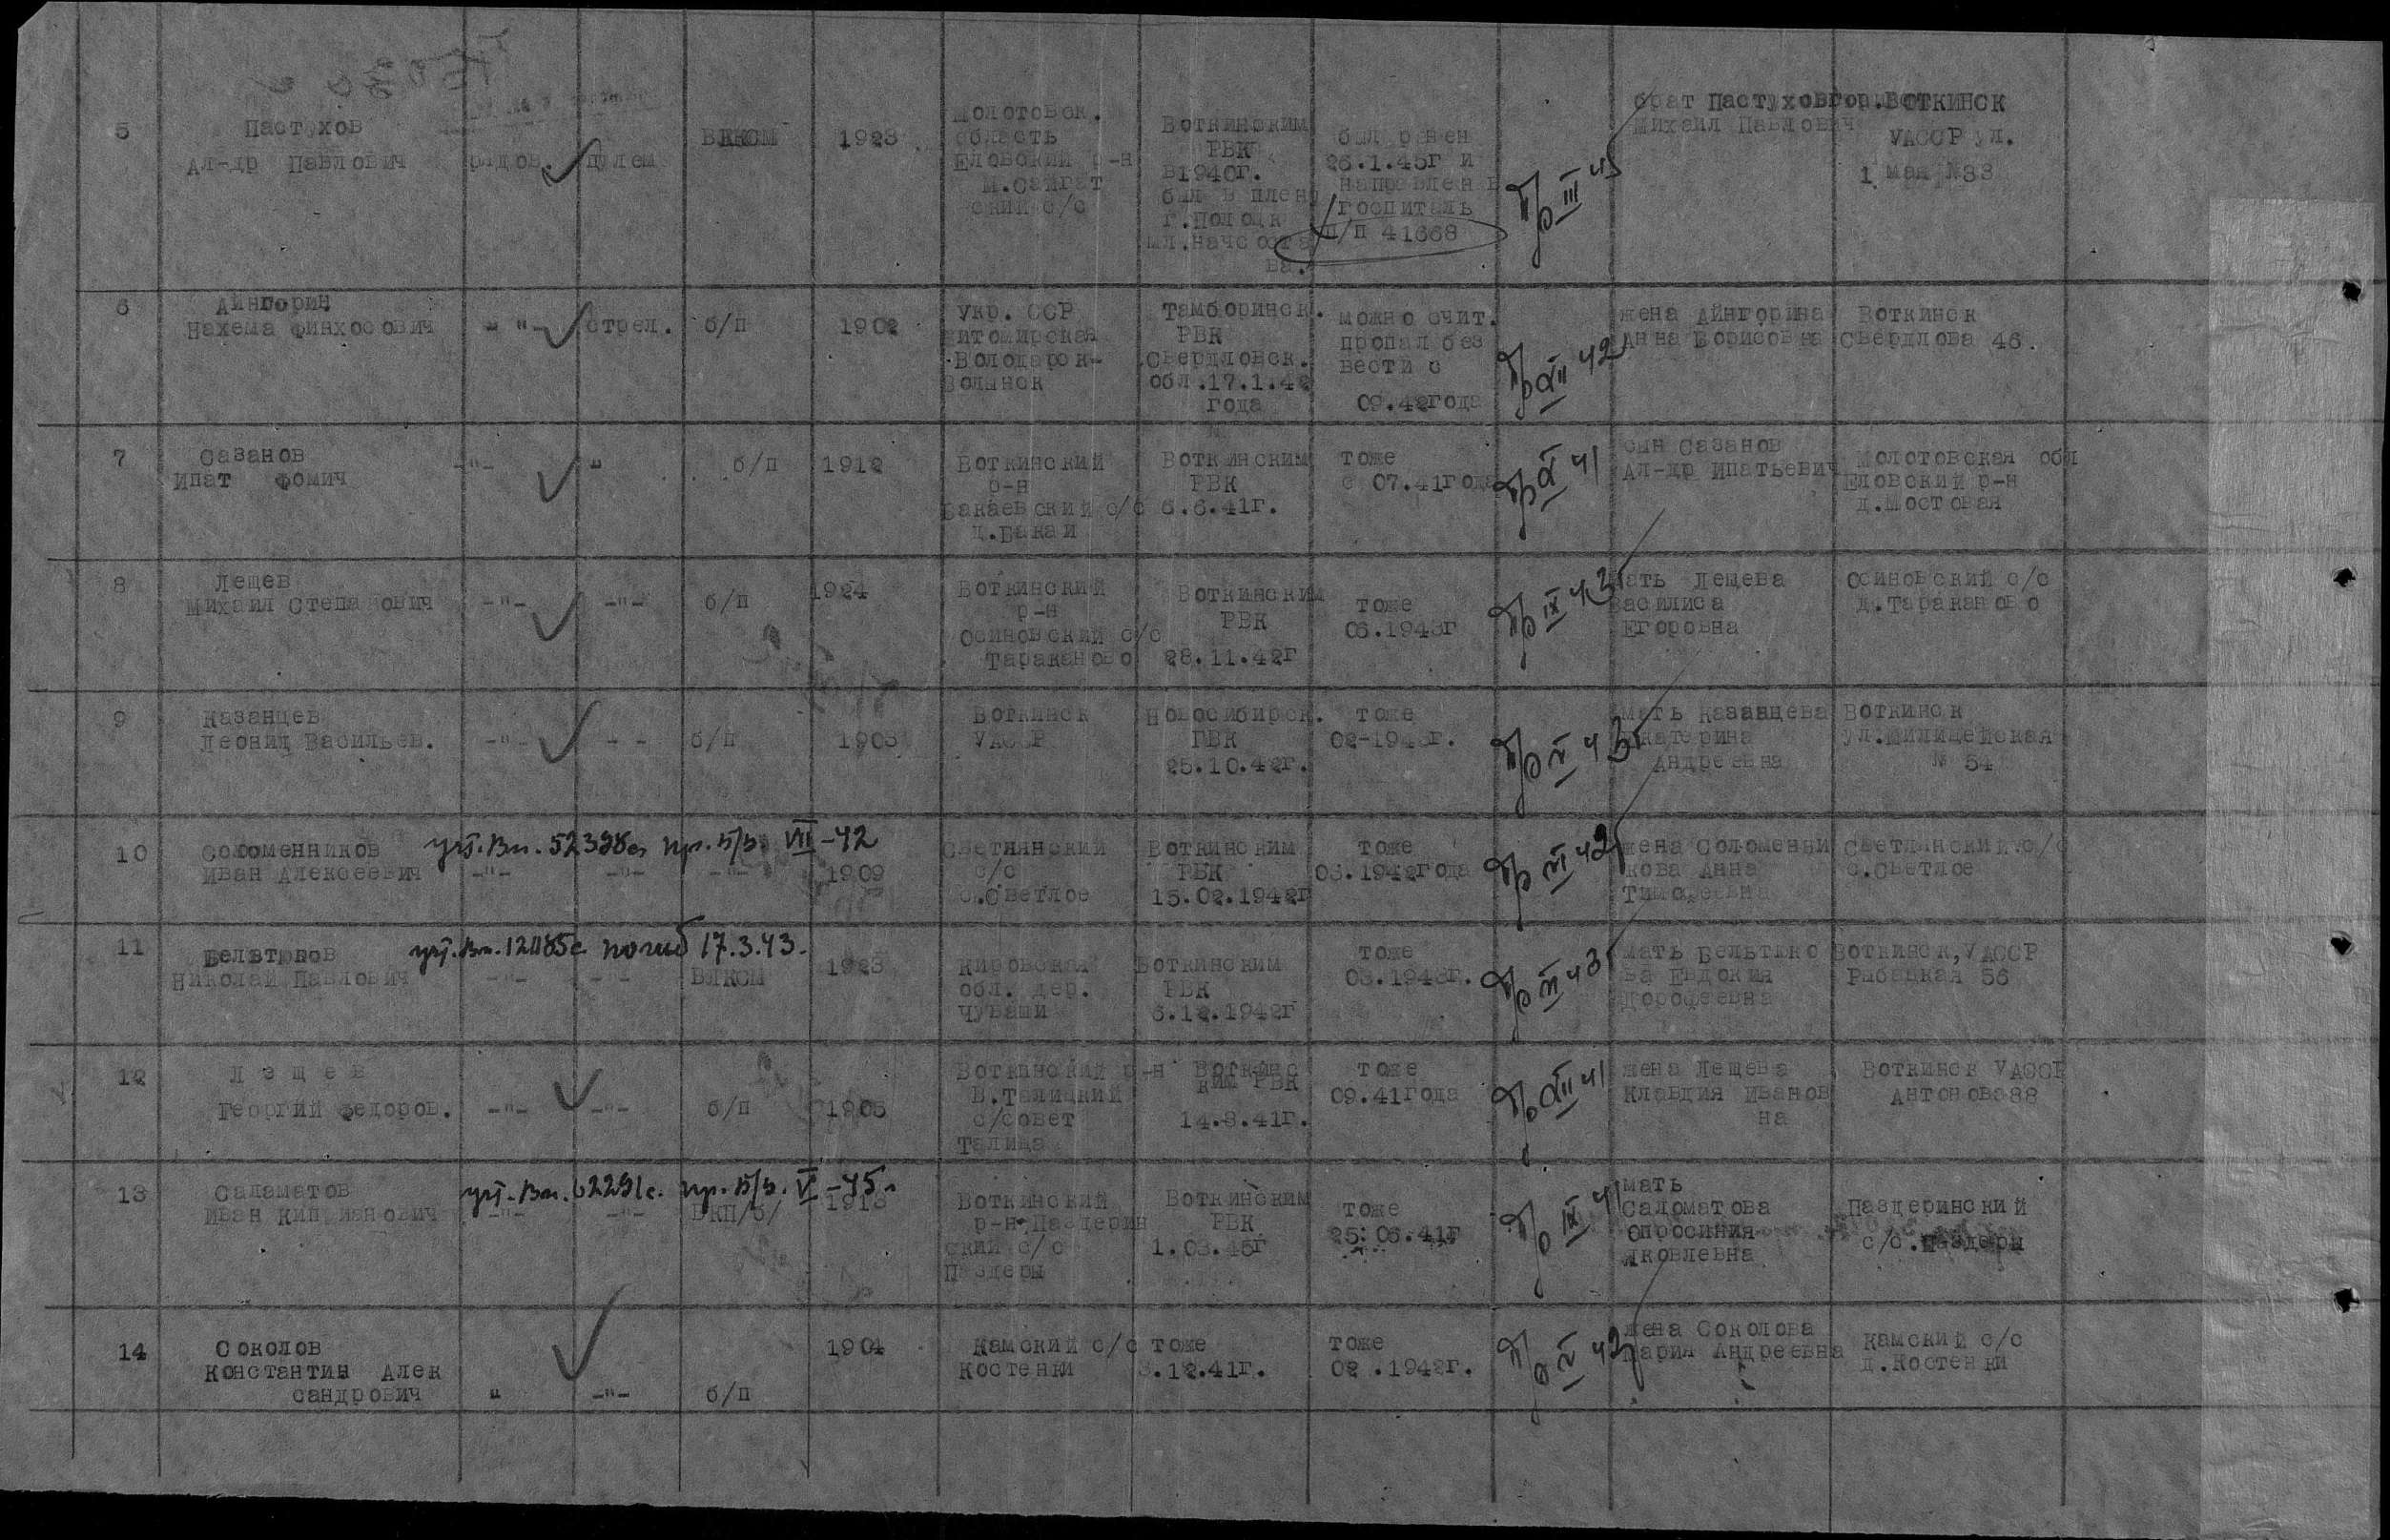 5
Пастухов
Ал-др Павлович
рядов.
пулем
ВЛКСМ
1923
Молотовск.
область
Еловский р-н
М.Сайгат
ский с/с
Воткинским
РВК
в1940г.
был в плену
г.Полоцк
мл.начсоста
ва.
был ранен
26.1.45г и
направлен в
госпиталь
п/п 41668
Пр III 45
брат Пастухов
Михаил Павлович
гор.Воткинск
УАССР ул.
1 мая №83
6
Айнгорин
Нахема Финхосович
-"-
стрел.
б/п
1902
Укр. ССР
Житомирская
Володарск-
Волынск
Тамборинск.
РВК
Свердловск.
обл.17.1.42
года
можно счит.
пропал без
вести с
09.42года
Пр XII 42
жена Айнгорина
Анна Борисовна
Воткинск
Свердлова 46.
7
Сазанов
Ипат Фомич
-"-
"
б/п
1912
Воткинский
р-н
Бакаевский с/с
д.Бакаи
Воткинским
РВК
6.6.41г.
тоже
с 07.41года
Пр X 41
сын Сазанов
Ал-др Ипатьевич
Молотовская обл
Еловский р-н
д.Мостовая
8
Лещев
Михаил Степанович
-"-
-"-
б/п
1924
Воткинский
р-н
Осиновский с/с
Тараканово
Воткинским
РВК
28.11.42г
тоже
06.1943г
Пр IX 43
мать Лещева
Василиса
Егоровна
Осиновский с/с
д.Тараканово
9
Казанцев
Леонид Васильев.
-"-
- -
б/п
1903
Воткинск
УАССР
Новосибирск.
РВК
25.10.42г.
тоже
02-1943г.
Пр V 43
мать Казанцева
Екатерина
Андреевна
Воткинск
ул.Милицейская
№ 54
10
Соломенников
Иван Алексеевич
учт.Вх.52398с пр.б/в. VIII-42
-"-
-"-
-"-
1909
Светлянский
с/с
с.Светлое
Воткинским
РВК
15.02.1942г
тоже
03.1942года
Пр VI 42
жена Соломенни
кова Анна
Тимофеевна
Светлянский с/с
с.Светлое
11
Бельтюков
Николай Павлович
учт.Вх.12085с погиб 17.3.43.
-"-
- -
ВЛКСМ
1923
Кировская
обл. дер.
Чуваши
Воткинским
РВК
6.12.1942г
тоже
03.1943г.
Пр VI 43
мать Бельтюко
ва Евдокия
Дорофеевна
Воткинск,УАССР
Рыбацкая 56
12
Лещев
Георгий Федоров.
-"-
-"-
б/п
1905
Воткинский р-н
В.Талицкий
с/совет
Талица
Воткинс
ким РВК
14.8.41г.
тоже
09.41года
Пр XII 41
жена Лещева
Клавдия Иванов
на
Воткинск УАССР
Антонова88
13
Саламатов
Иван Киприянович
учт.Вх.62291с. пр.б/в. V-45г
-"-
-"-
ВКП/б/
1918
Воткинский
р-н Паздерин
ский с/с
Паздеры
Воткинским
РВК
1.03.45г
тоже
25.06.41г
Пр IX 41
мать
Саломатова
Опросиния
Яковлевна
Паздеринский
с/с.Паздеры
14
Соколов
Константин Алек
сандрович
"
-"-
б/п
1904
Камский с/с
Костенки
тоже
8.12.41г.
тоже
02.1942г.
Пр V 42
жена Соколова
Мария Андреевна
Камский с/с
д.Костенки